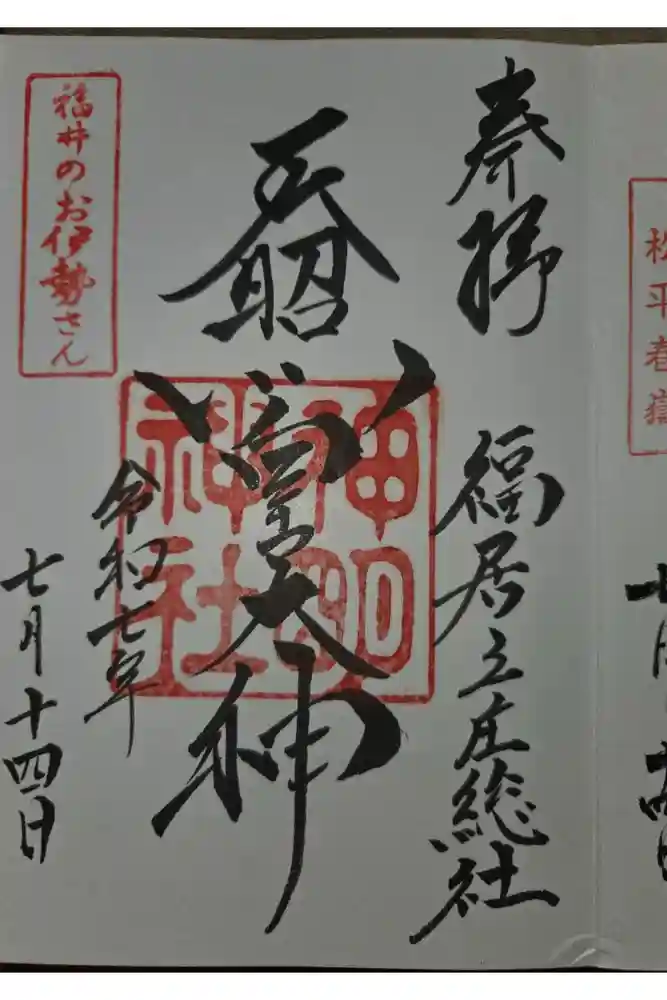 松平春嶽
奉拝
福居之庄総社
天照皇大神
神明神社
令和七年
七月十四日
福井のお伊勢さん